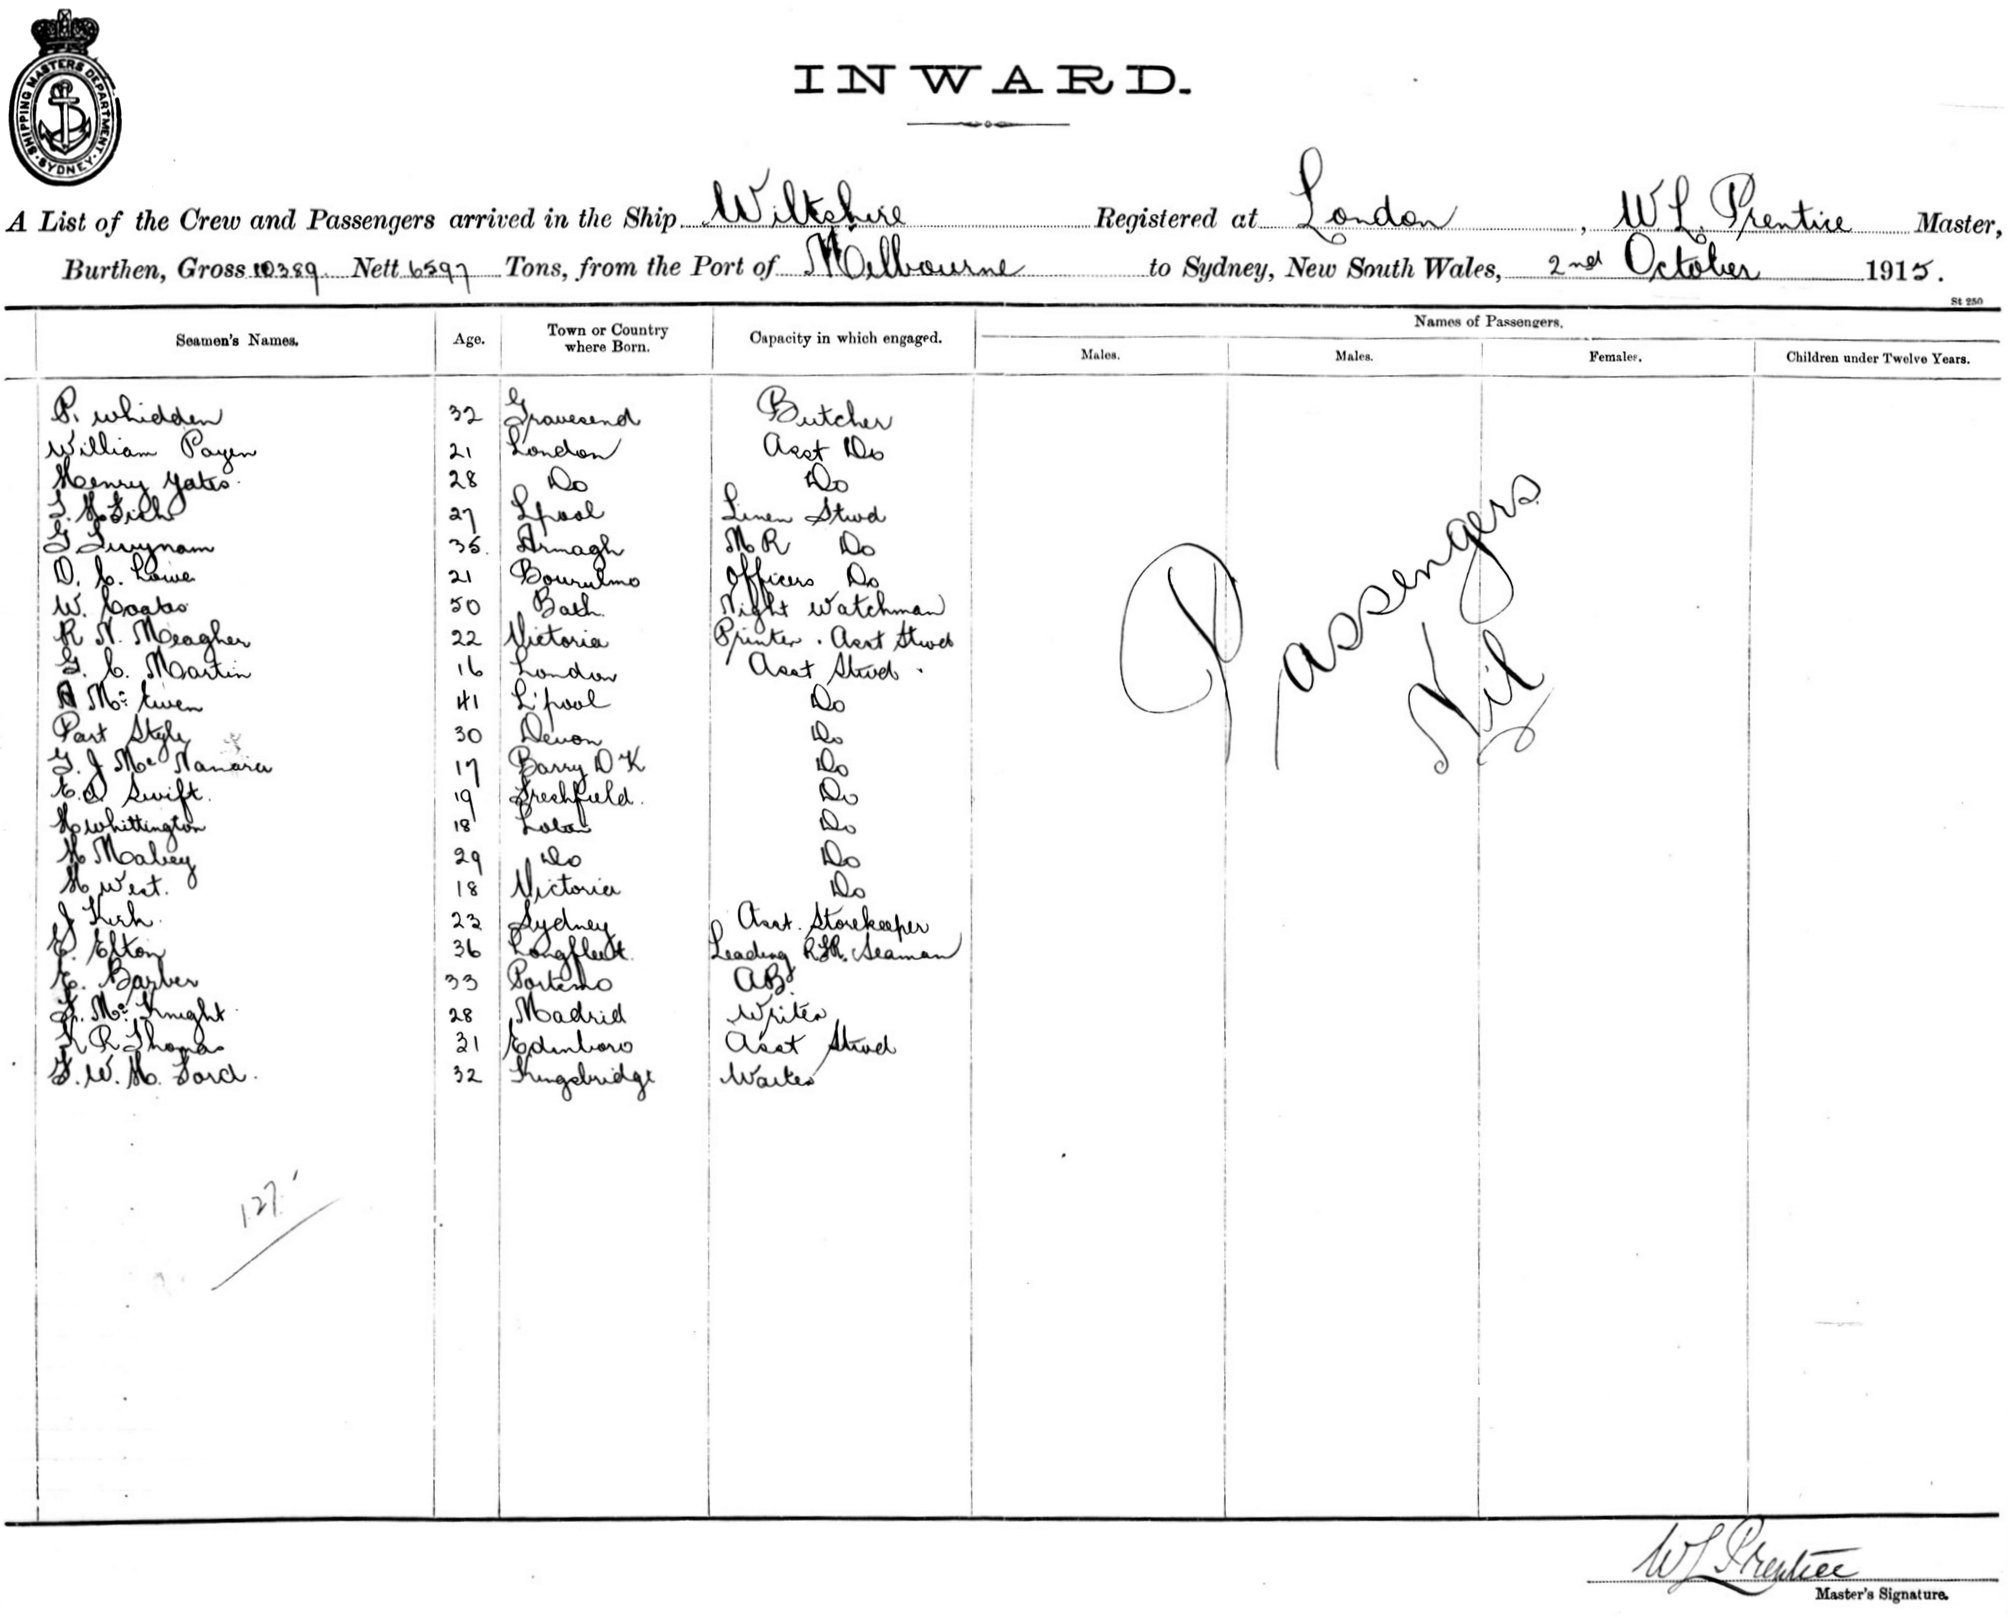 SHIPPING MASTERS DEPARTMENT
SYDNEY
INWARD.
A List of the Crew and Passengers arrived in the Ship Wiltshire Registered at London, W L Prentice Master,
Burthen, Gross 10389 Nett 6597 Tons, from the Port of Melbourne to Sydney, New South Wales, 2nd October 1915.
St 250
Seamen's Names. Age. Town or Country where Born. Capacity in which engaged. Names of Passengers.
Males. Males. Females. Children under Twelve Years.
P. Whidden 32 Gravesend Butcher
William Payen 21 London Asst Do
Henry Yates 28 Do Do
27 L'pool Linen Stwd
35 Armagh M R Do
D. C. Lowe 21 Officers Do
W. Coates 50 Bath Night Watchman
R N. Meagher 22 Victoria Printer. Asst Stwd
G. C. Martin 16 London Asst Stwd.
A Mc Ewen 41 L'pool Do
Style 30 Devon Do
G. J Mc Namara 17 Barry D K Do
Swift. 19 Freshfield. Do
H Whittington 18 Do
H Mabey 29 Do Do
H West. 18 Victoria Do
J Kirk 23 Sydney Asst. Storekeeper
E. Elton 36 Longfleet Leading Seaman
E. Barber 33 AB
Mc Knight 28 Madrid Writer
R Thomas 31 Edinboro Asst Stwd
F. W. H. Ford. 32 Kingsbridge Waiter
Passengers
Nil
127.
W L Prentice
Master's Signature.